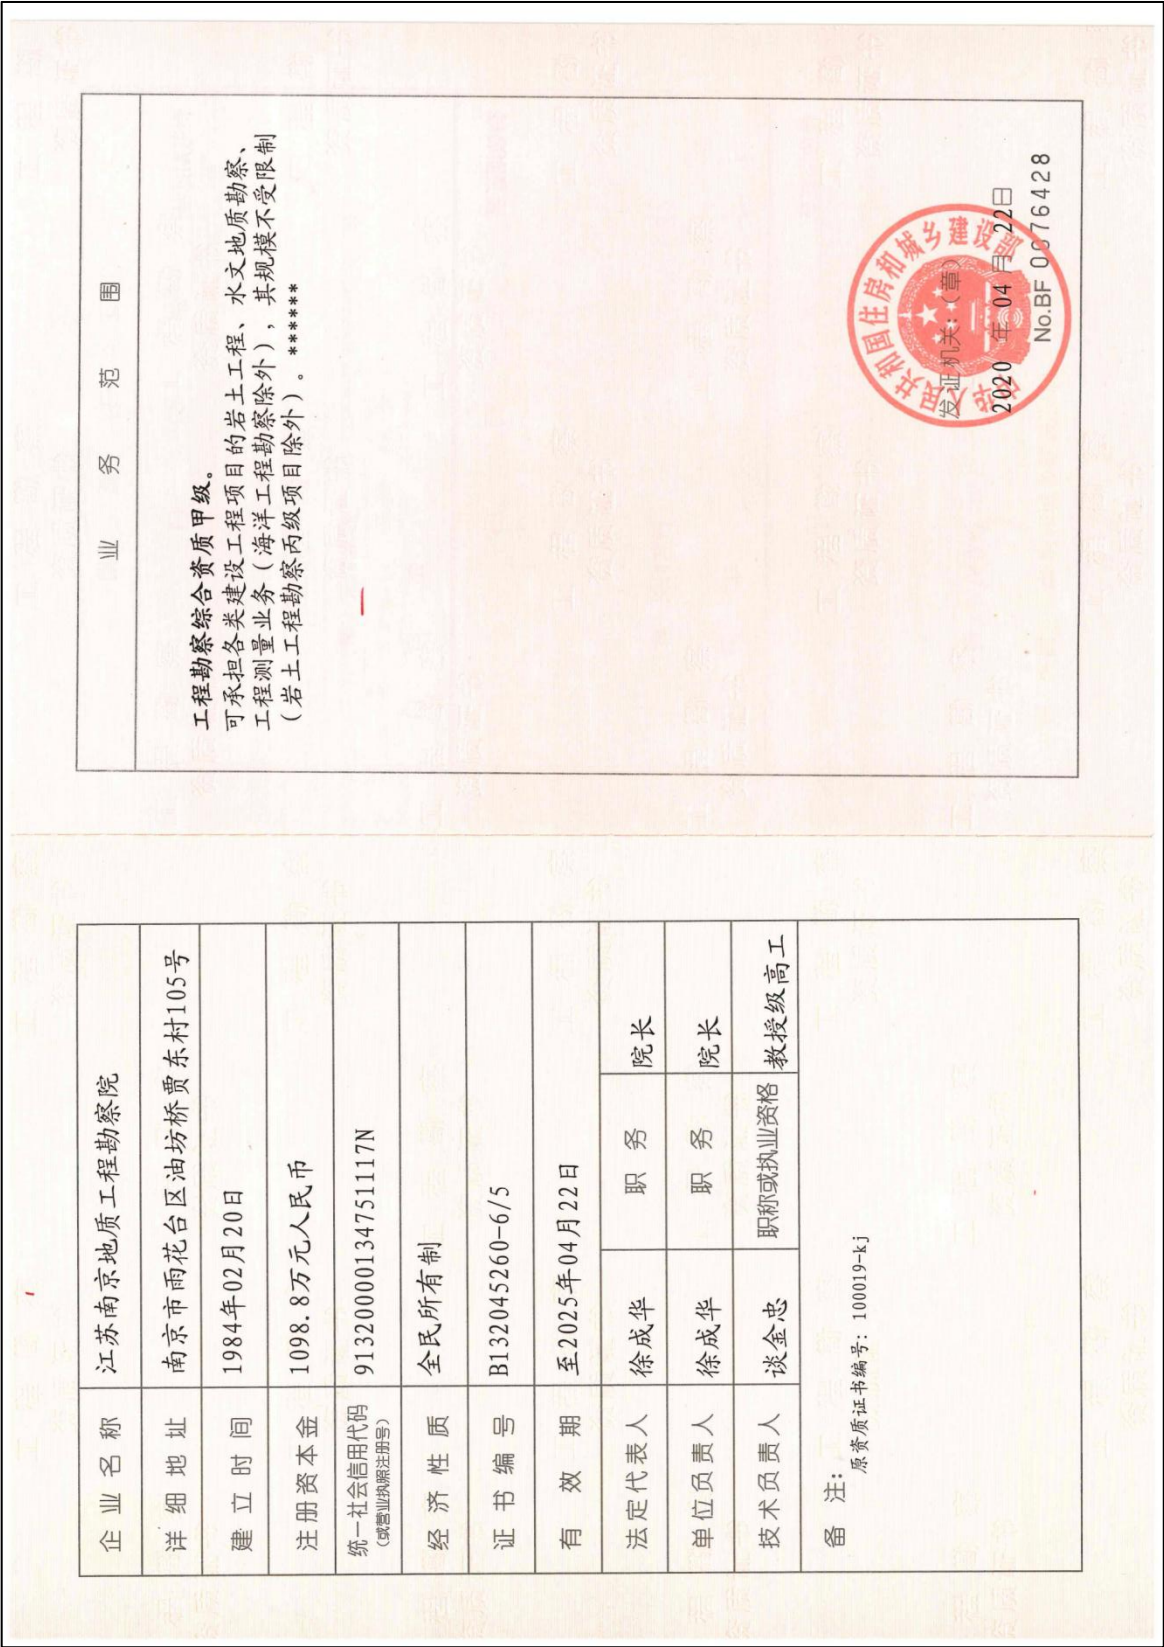 企业名称 江苏南京地质工程勘察院
详细地址 南京市雨花台区油坊桥贾东村105号
建立时间 1984年02月20日
注册资本金 1098.8万元人民币
统一社会信用代码 913200001347511117N
(或营业执照注册号)
经济性质 全民所有制
证书编号 B132045260-6/5
有效期 至2025年04月22日
法定代表人 徐成华 职务 院长
单位负责人 徐成华 职务 院长
技术负责人 谈金忠 职称或执业资格 教授级高工
备注:
原资质证书编号: 100019-kj
业务范围
工程勘察综合资质甲级。
可承担各类建设工程项目的岩土工程、水文地质勘察、
工程测量业务(海洋工程勘察除外),其规模不受限制
(岩土工程勘察丙级项目除外)。******
中华人民共和国住房和城乡建设部
发证机关:(章)
2020年04月22日
No.BF 0076428